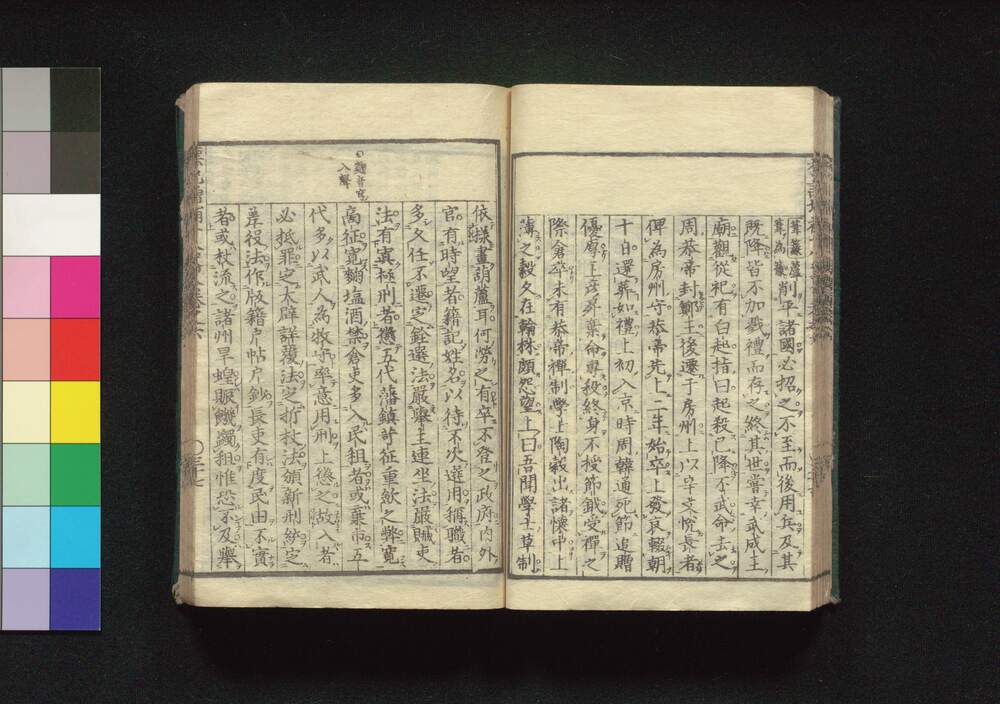 削平諸國必招之不至而後用兵及其
既降皆不加戮禮而存之終其世嘗幸武成王
廟觀從祀有白起指曰起殺已降不武命去之
周恭帝封鄭王後遷于房州上以辛文悅長者
俾為房州守恭帝死上二年始卒上發哀輟朝
十日還葬如禮上初入京時周韓通死節追贈
優厚上怒彥昇棄命專殺終身不授節鉞受禪之
際倉卒未有恭帝禪制學士陶穀出諸懷中上
薄之穀久在翰林頗怨望上曰吾聞學士草制
依樣畫葫蘆耳何勞之有卒不登之政府內外
官有時望者籍記姓名以待不次選用稱職者
多久任不遷定銓選法嚴舉主連坐法嚴贓吏
法有寘極刑者懲五代藩鎮苛征重斂之弊寬
商征寬麴塩酒禁倉吏多入民租者或棄市五
代多以武人為牧守率意用刑上懲之故入者
必抵罪定大辟詳覆法定折杖法頒新刑統定
差役法作版籍戶帖戶鈔長吏有度民田不實
者或杖流之諸州旱蝗賑饑蠲租惟恐不及舉